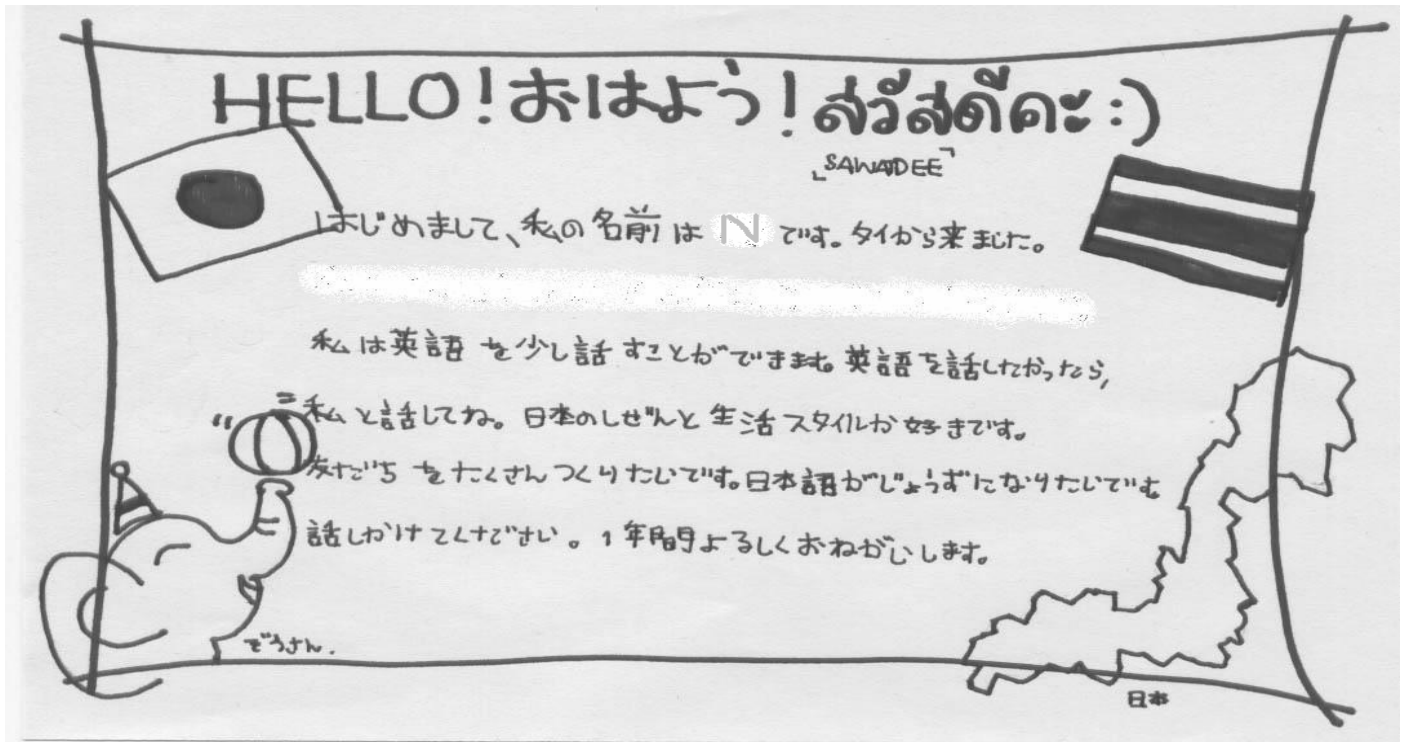 HELLO! おはよう! สวัสดีคะ :)
「SAWADEE」
はじめまして、私の名前は N です。タイから来ました。
私は英語を少し話すことができます。英語を話したかったら,
私と話してね。日本のしぜんと生活スタイルが好きです。
友だちをたくさんつくりたいです。日本語がじょうずになりたいです。
話しかけてください。1年間よろしくおねがいします。
ぞうさん.
日本